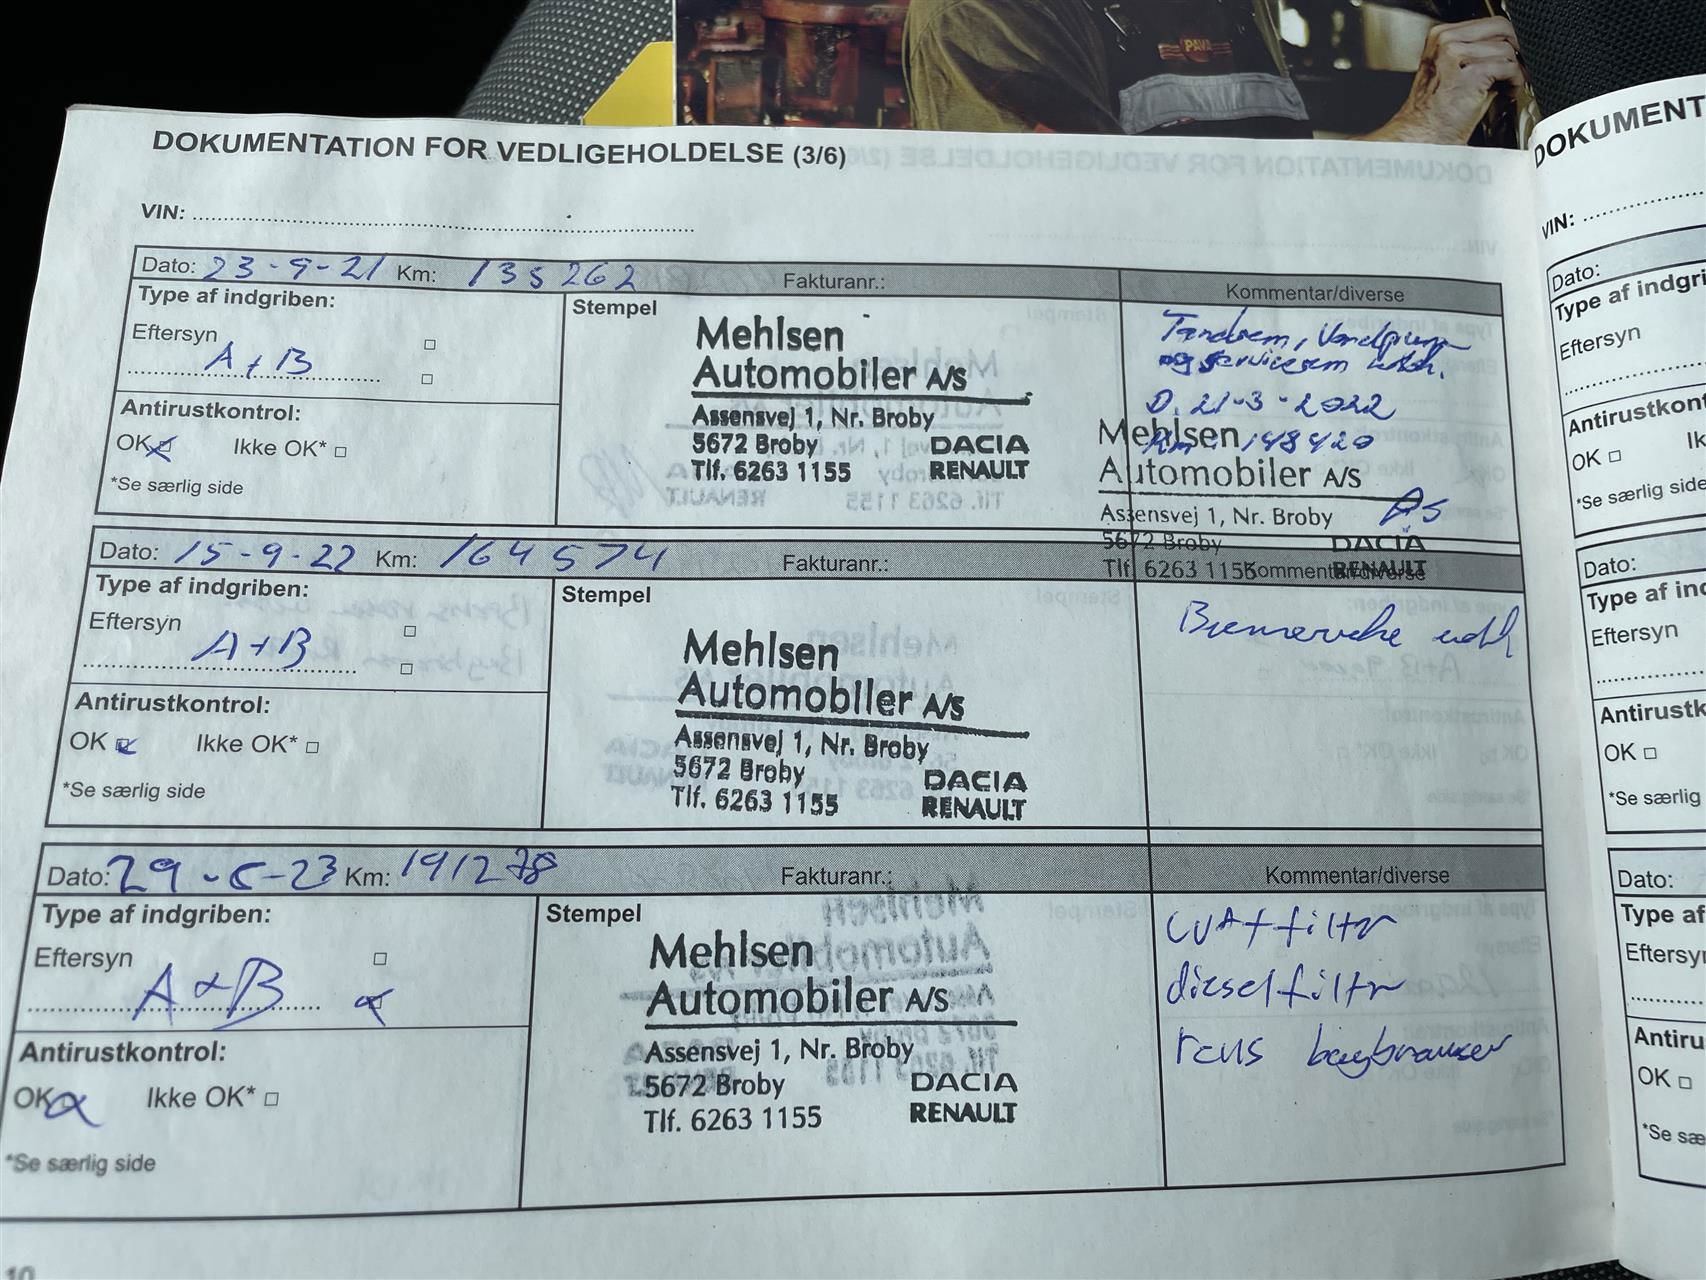 PAVA
DOKUMENTATION FOR VEDLIGEHOLDELSE (3/6)
VIN:
Dato: 23-9-21 Km: 135262 Fakturanr.: Kommentar/diverse
Type af indgriben:
Eftersyn
A+B
Antirustkontrol:
OK Ikke OK*
*Se særlig side
Stempel
Mehlsen
Automobiler A/S
Assensvej 1, Nr. Broby
5672 Broby DACIA
Tlf. 6263 1155 RENAULT
Tandrem, Vandpumpe
og servicerem udsk.
D. 21-3-2022
Km 148420
Mehlsen
Automobiler A/S
Assensvej 1, Nr. Broby
5672 Broby DACIA
Tlf. 6263 1155 RENAULT
Dato: 15-9-22 Km: 164574 Fakturanr.: Kommentar/diverse
Type af indgriben:
Eftersyn
A+B
Antirustkontrol:
OK Ikke OK*
*Se særlig side
Stempel
Mehlsen
Automobiler A/S
Assensvej 1, Nr. Broby
5672 Broby DACIA
Tlf. 6263 1155 RENAULT
Dato: 29-6-23 Km: 191278 Fakturanr.: Kommentar/diverse
Type af indgriben:
Eftersyn
A+B
Antirustkontrol:
OK Ikke OK*
*Se særlig side
Stempel
Mehlsen
Automobiler A/S
Assensvej 1, Nr. Broby
5672 Broby DACIA
Tlf. 6263 1155 RENAULT
luftfiltr
dieselfiltr
rens bagbremser
10
DOKUMENT
VIN:
Dato:
Type af indgri
Eftersyn
Antirustkont
OK Ik
*Se særlig side
Dato:
Type af ind
Eftersyn
Antirustk
OK
*Se særlig
Dato:
Type af
Eftersy
Antiru
OK
*Se sæ